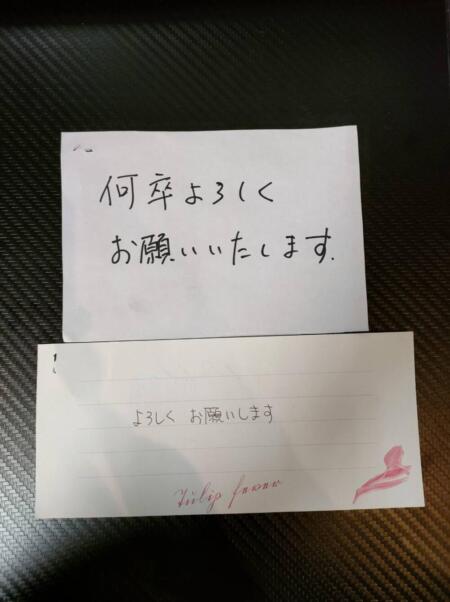 何卒よろしく
お願いいたします.
よろしく お願いします
Tulip fever